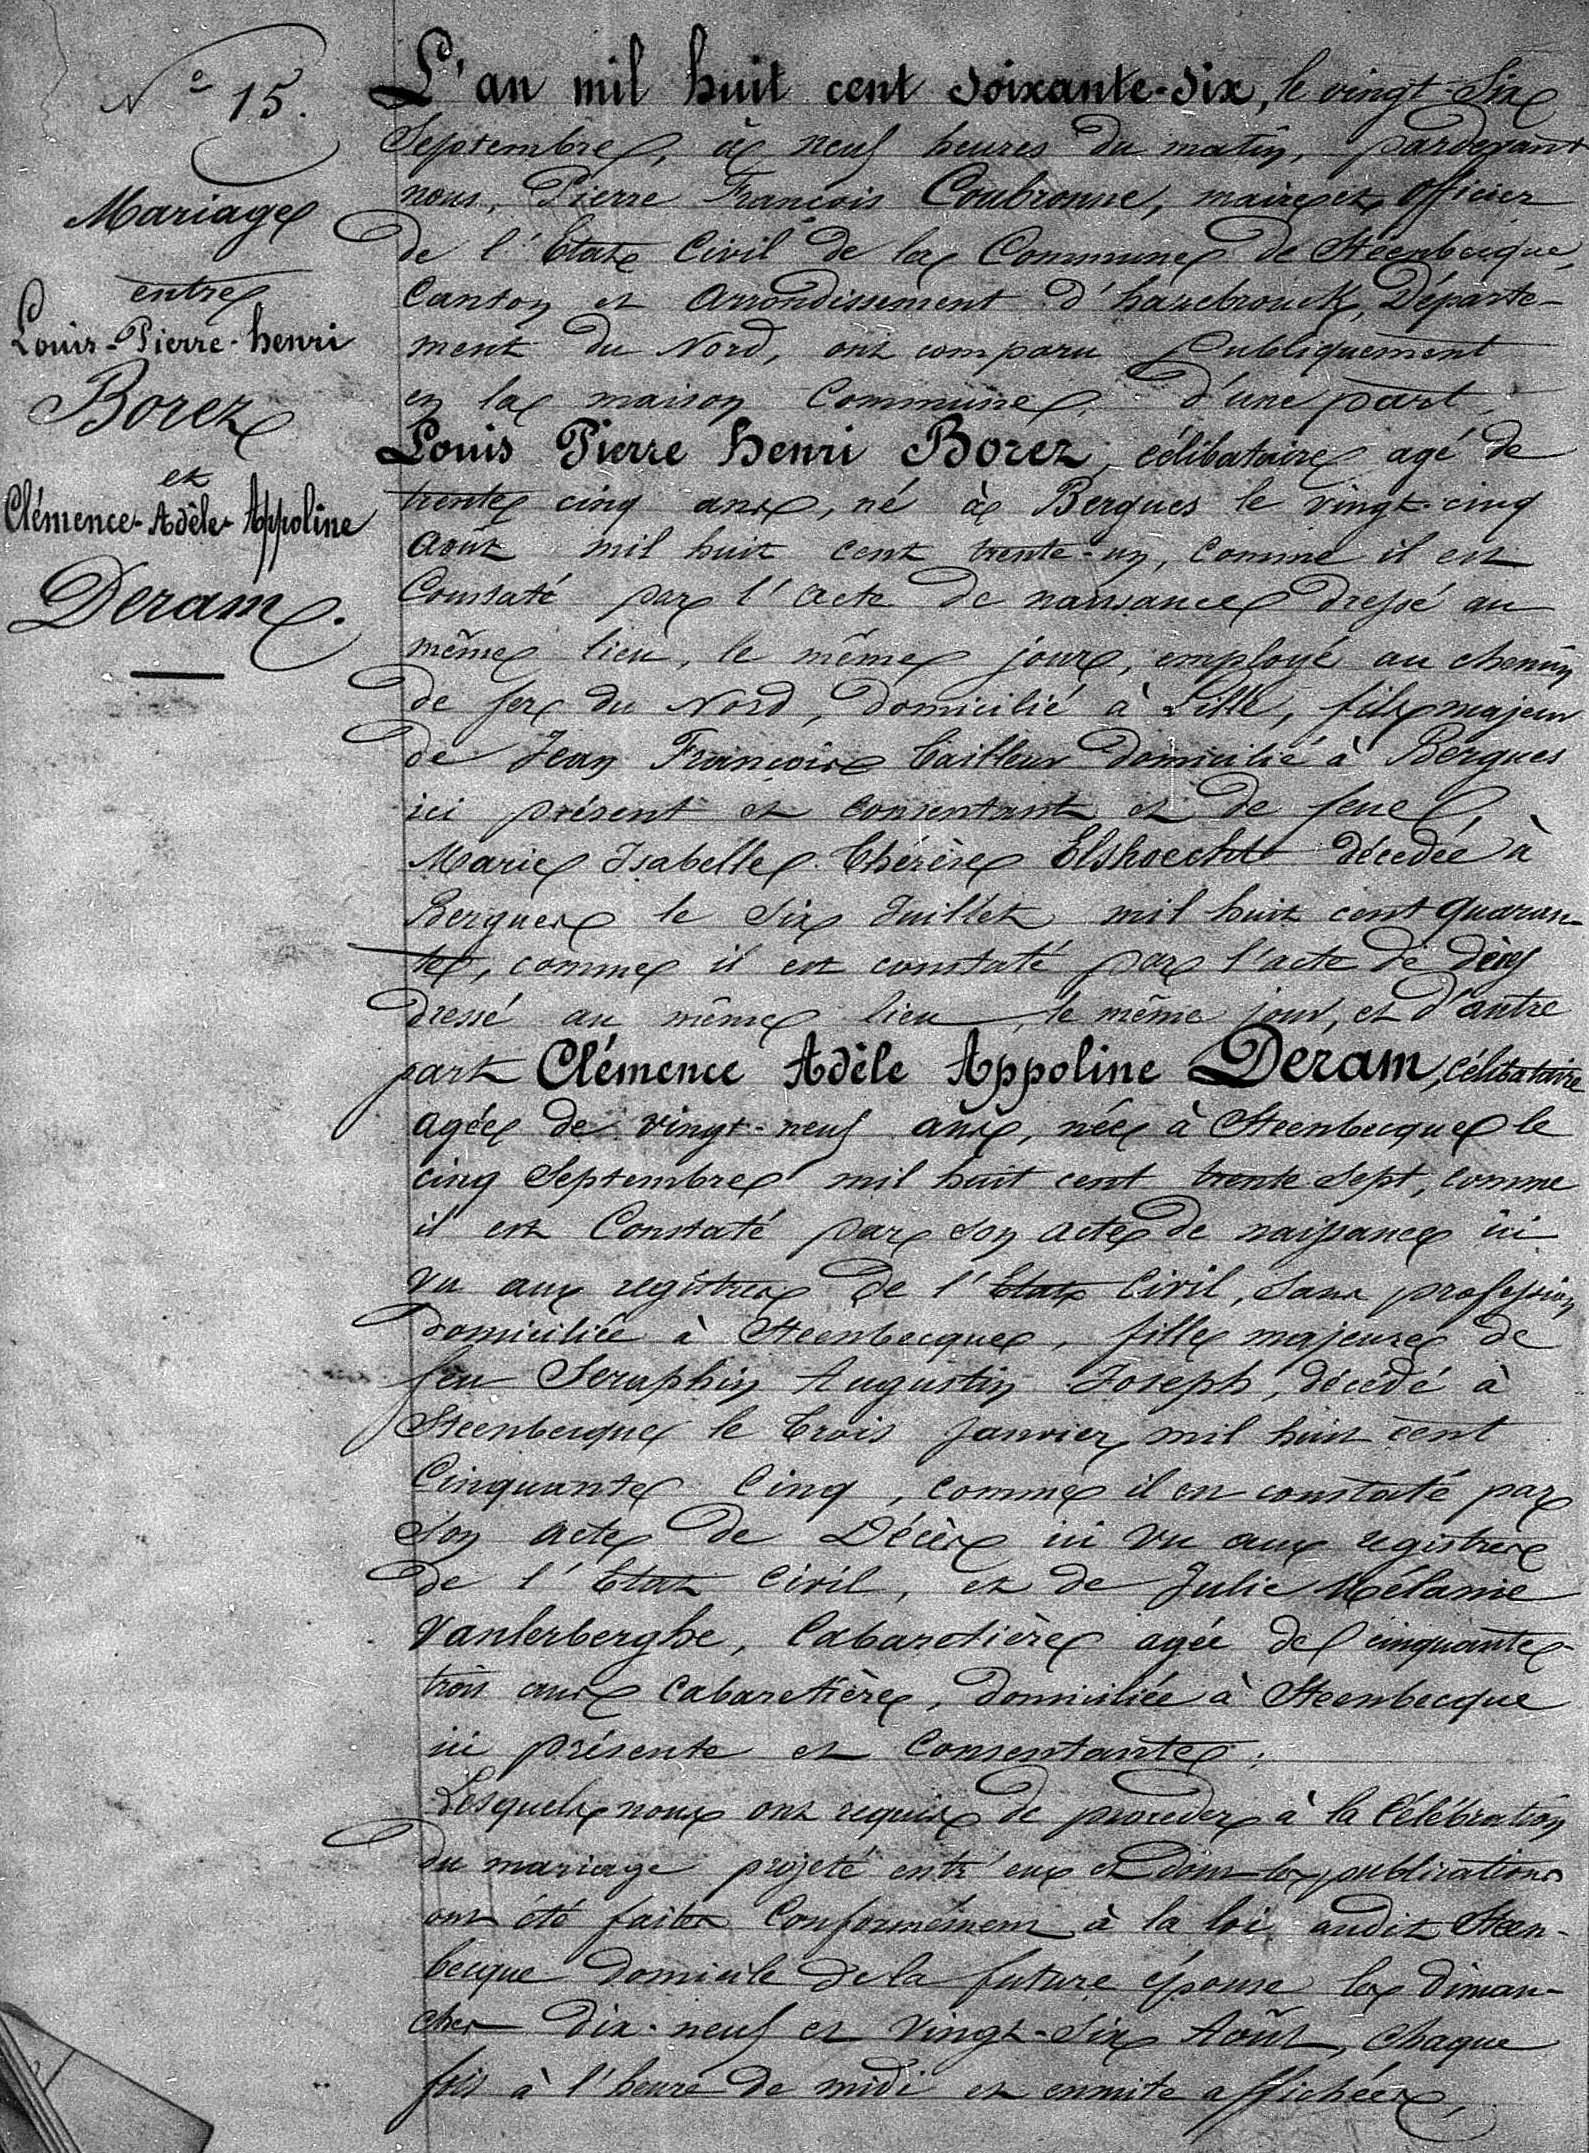 N° 15.
Mariage
entre
Louis-Pierre-henri
Borez
et
Clémence-Adèle-Appoline
Deram.
L'an mil huit cent soixante-six, le vingt-six
Septembre, à neuf heures du matin, pardevant
nous, Pierre François Coubronne, maire et officier
de l'Etat Civil de la Commune de Steenbecque,
Canton et arrondissement d'hazebrouck, Départe-
ment du Nord, ont comparu publiquement
en la maison Commune, d'une part,
Louis Pierre henri Borez, célibataire agé de
trente cinq ans, né à Bergues le vingt-cinq
Août mil huit cent trente-un, comme il est
Constaté par l'acte de naissance dressé au
même lieu, le même jour, employé au chemin
de fer du Nord, domicilié à Lille, fils majeur
de Jean François tailleur domicilié à Bergues
ici présent et consentant et de feue
Marie Isabelle Thérèse Elshoecht décedée à
Bergues le six Juillet mil huit cent quaran-
te, comme il est constaté par l'acte de décès
dressé au même lieu, le même jour, et d'autre
part Clémence Adèle Appoline Deram, célibataire
agée de vingt-neuf ans, née à Steenbecque le
cinq Septembre mil huit cent trente sept, comme
il est Constaté par son acte de naissance ici
vu aux registres de l'Etat Civil, sans profession
domiciliée à Steenbecque, fille majeure de
feu Seraphin Augustin Joseph, décédé à
Steenbecque le trois janvier mil huit cent
Cinquante Cinq, comme il en constaté par
son acte de Décès ici vu aux registres
de l'Etat Civil, et de Julie Mélanie
Vanlerberghe, Cabaretière agée de cinquante
trois ans cabaretière, domiciliée à Steenbecque
ici présente et Consentante.
Lesquels nous ont requis de proceder à la Célébration
du mariage projeté entr'eux et dont les publications
ont été faites Conformément à la loi, audit Steen-
becque domicile de la future épouse les diman-
ches dix-neuf et vingt-six Août, chaque
fois à l'heure de midi et ensuite affichées,